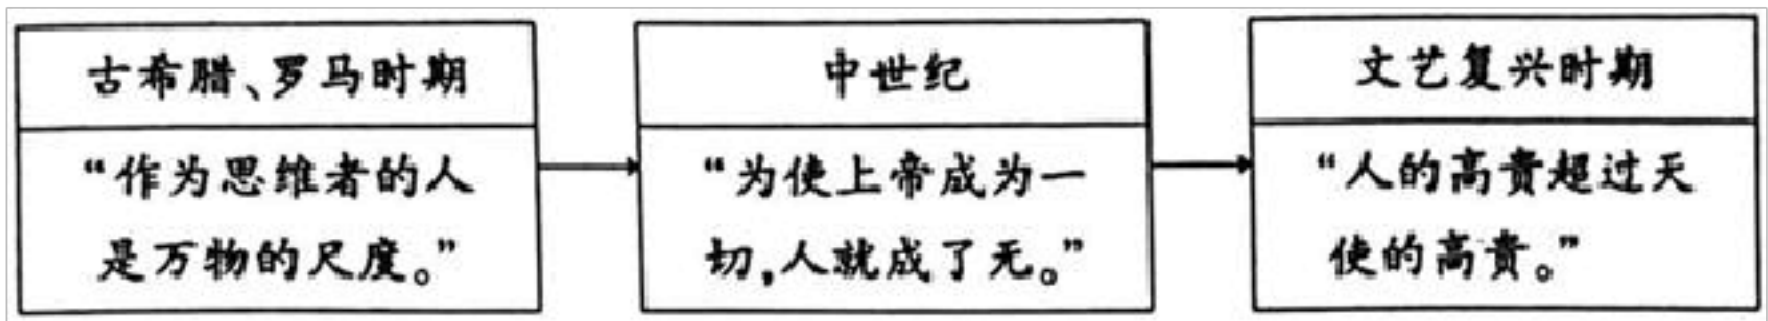 古希腊、罗马时期
“作为思维者的人
是万物的尺度。”
中世纪
“为使上帝成为一
切,人就成了无。”
文艺复兴时期
“人的高贵超过天
使的高贵。”